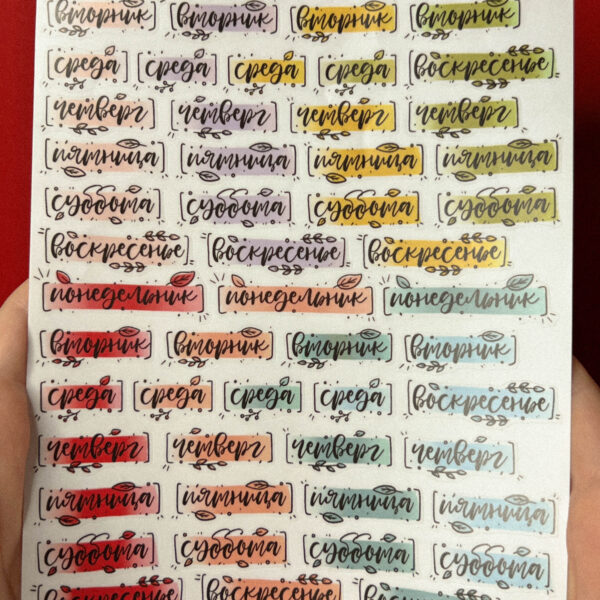 вторник вторник вторник вторник
среда среда среда среда воскресенье
четверг четверг четверг четверг
пятница пятница пятница пятница
суббота суббота суббота суббота
воскресенье воскресенье воскресенье
понедельник понедельник понедельник
вторник вторник вторник вторник
среда среда среда среда воскресенье
четверг четверг четверг четверг
пятница пятница пятница пятница
суббота суббота суббота суббота
воскресенье воскресенье воскресенье